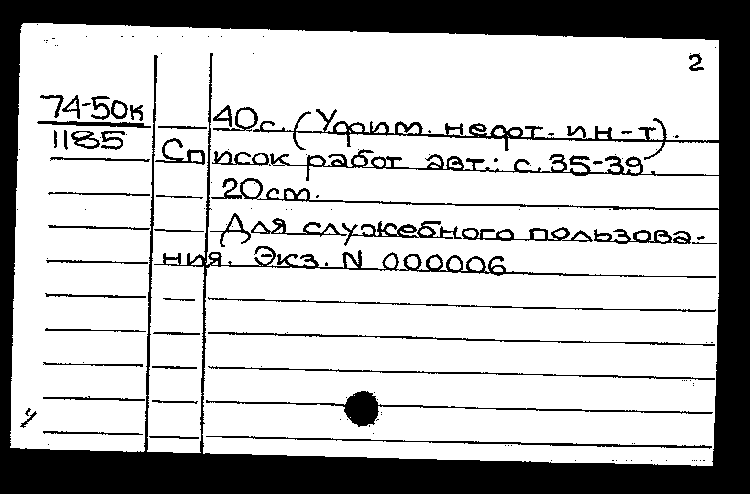 2
74-50к
1185
40с. (Уфим. нефт. ин-т).
Список работ авт.: с. 35-39.
20см.
Для служебного пользова-
ния. Экз. N 000006